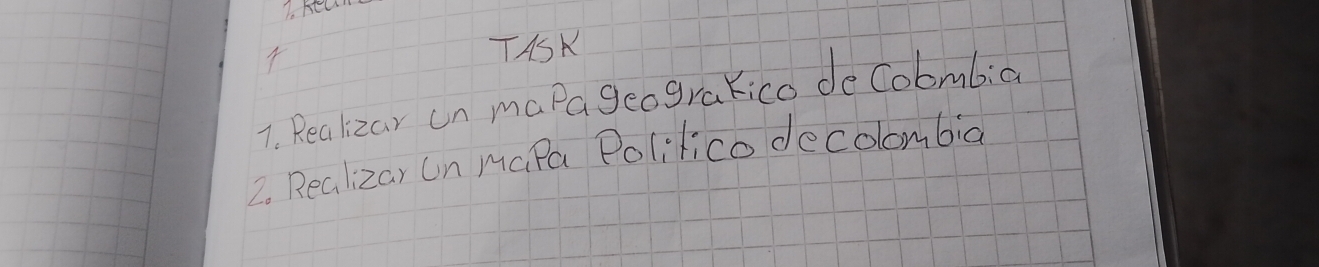 TASK
1. Realizar un mapa geografico de Colombia
2. Realizar un mapa Politico de colombia